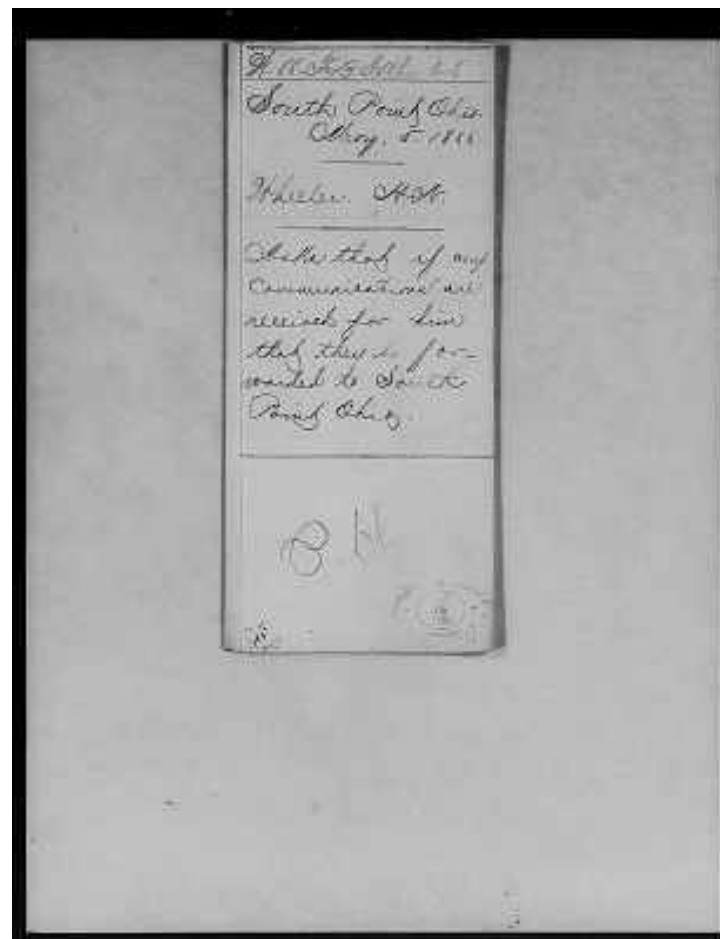 South Point Ohio
May, 5 1866
Wheeler. H.N.
Asks that if any
Communications are
received for him
that they be for-
warded to South
Point Ohio.
B. H